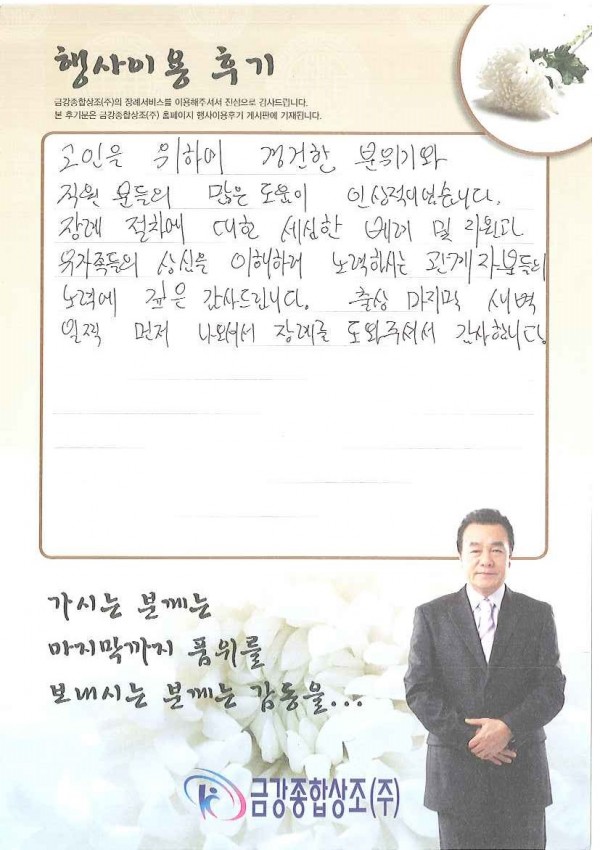 행사이용 후기
금강종합상조(주)의 장례서비스를 이용해주셔서 진심으로 감사드립니다.
본 후기분은 금강종합상조(주) 홈페이지 행사이용후기 게시판에 기재됩니다.
고인을 위하여 경건한 분위기와
직원 분들의 많은 도움이 인상적이었습니다.
장례 절차에 대한 세심한 배려 및 지원과
유가족들의 상심을 이해하려 노력하시는 관계자분들의
노력에 깊은 감사드립니다. 출상 마지막 새벽
일찍 먼저 나오셔서 장례를 도와주셔서 감사합니다
가시는 분께는
마지막까지 품위를
보내시는 분께는 감동을...
금강종합상조(주)